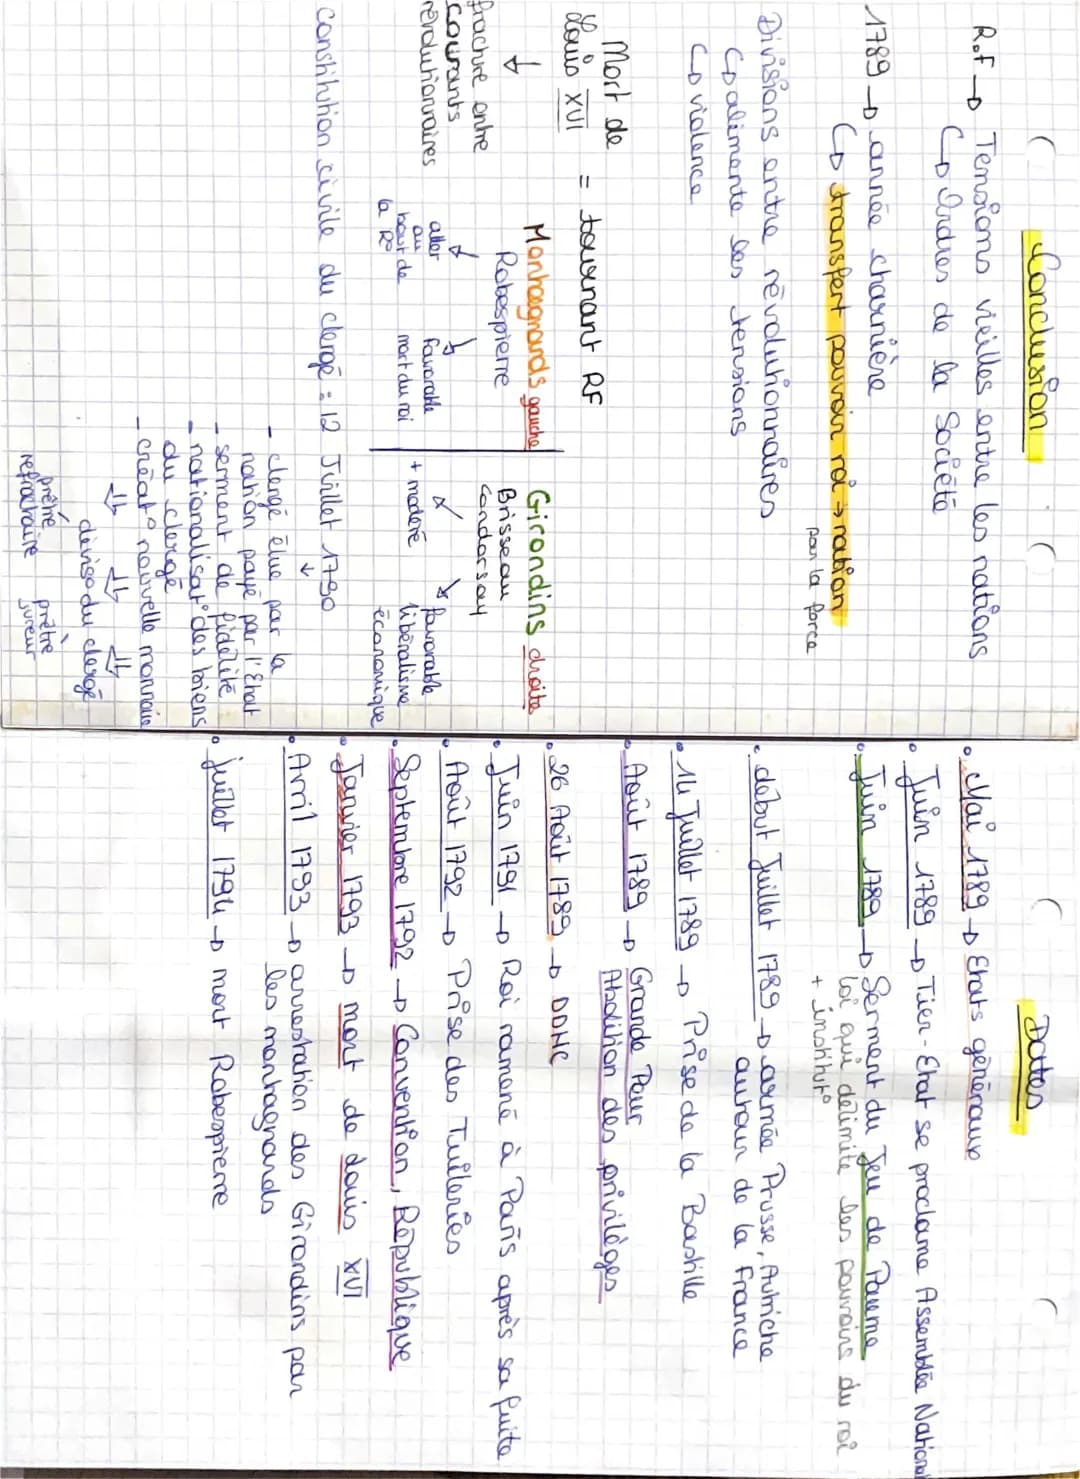 Conclusion
R.F → Tensions vieilles entre les nations
↳ Ordres de la société
1789 → année charnière
↳ transfert pouvoir roi → nation
par la force
Divisions entre révolutionnaires
↳ alimente les tensions
↳ violence
Mort de Louis XVI = tournant RF
↓
fracture entre
courants
révolutionnaires
Montagnards gauche
Robespierre
aller au bout de la R°
favorable mort du roi
Girondins droite
Brisseau
Condorsay
+ modéré
favorable libéralisme économique
constitution civile du clergé = 12 Juillet 1790
↓
- clergé élue par la
nation payé par l'Etat
- serment de fidélité
- nationalisat° des biens
du clergé
- créat° nouvelle monnaie
⇓ ⇓ ⇓
diviso du clergé
prêtre réfractaire
prêtre jureur
Dates
• Mai 1789 → Etats généraux
• Juin 1789 → Tier-Etat se proclame Assemblée Nationa
• Juin 1789 → Serment du Jeu de Paume
loi qui délimite les pouvoirs du roi
+ institut°
• début Juillet 1789 → armée Prusse, Autriche
autour de la France
• 14 Juillet 1789 → Prise de la Bastille
• Août 1789 → Grande Peur
Abolition des privilèges
• 26 Août 1789 → DDHC
• Juin 1791 → Roi ramené à Paris après sa fuite
• Août 1792 → Prise des Tuileries
• Septembre 1792 → Convention, République
• Janvier 1793 → mort de Louis XVI
• Avril 1793 → arrestation des Girondins par
les montagnards
• juillet 1794 → mort Robespierre